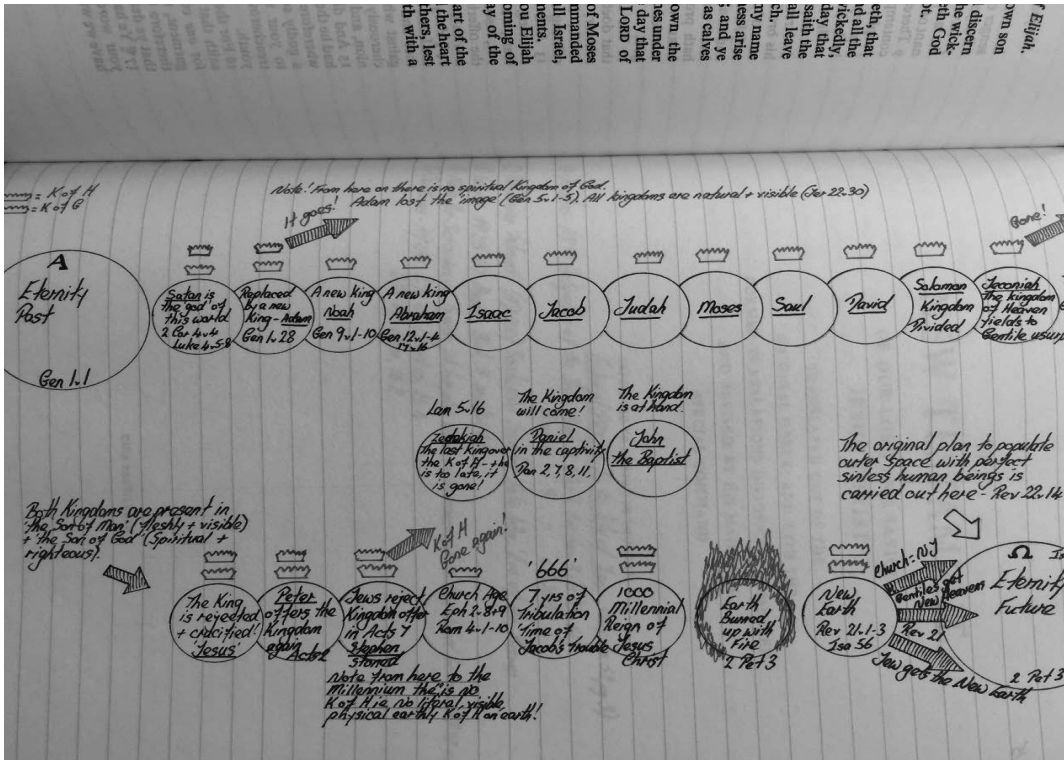 f Elijah.
own son
discern
he wick-
eth God
ot.
eth, that
nd all the
rickedly,
day that
saith the
all leave
ch.
my name
ess arise
s; and ye
as calves
own the
nes under
day that
LORD of
of Moses
mmanded
ll Israel,
ments.
ou Elijah
oming of
ay of the
art of the
the heart
thers, lest
th with a
= K of H
= K of G
Note! From here on there is no spiritual Kingdom of God.
Adam lost the 'image' (Gen 5v1-5). All kingdoms are natural + visible (Jer 22.30)
It goes!
Gone!
A
Eternity
Past
Gen 1v1
Satan is
the 'god' of
this world
2 Cor 4v4
Luke 4v5-8
Replaced
by a new
King - Adam
Gen 1v28
A new King
Noah
Gen 9v1-10
A new King
Abraham
Gen 12v1-4
17v16
Isaac
Jacob
Judah
Moses
Saul
David
Solomon
Kingdom
Divided
Jeconiah
The kingdom
of Heaven
yields to
Gentile usurp
Lam 5v16
Zedekiah
The last King over
the K of H - + he
is too late, it
is gone!
The Kingdom
will come!
Daniel
in the captivity
Dan 2, 7, 8, 11,
The Kingdom
is at hand.
John
the Baptist
The original plan to populate
outer space with perfect
sinless human beings is
carried out here - Rev 22v14
Both Kingdoms are present in
'the Son of Man' (fleshly + visible)
+ 'the Son of God' (Spiritual +
righteous).
The King
is rejected
+ crucified!
'Jesus'
Peter
offers the
Kingdom
again
Acts 2
Jews reject
Kingdom offer
in Acts 7
Stephen
stoned
K of H
Gone again!
Church Age
Eph 2v8+9
Rom 4v1-10
'666'
7 yrs of
Tribulation
Time of
Jacob's trouble
1000
Millennial
Reign of
Jesus
Christ
Earth
burned
up with
Fire
2 Pet 3
New
Earth
Rev 21v1-3
Isa 56
Church - NJ
Gentiles get
New Heavens
Rev 21
Jew gets the New Earth
Ω
Eternity
Future
2 Pet 3
Note from here to the
Millennium the is no
K of H ie, no literal, visible,
physical earthly K of H on earth!